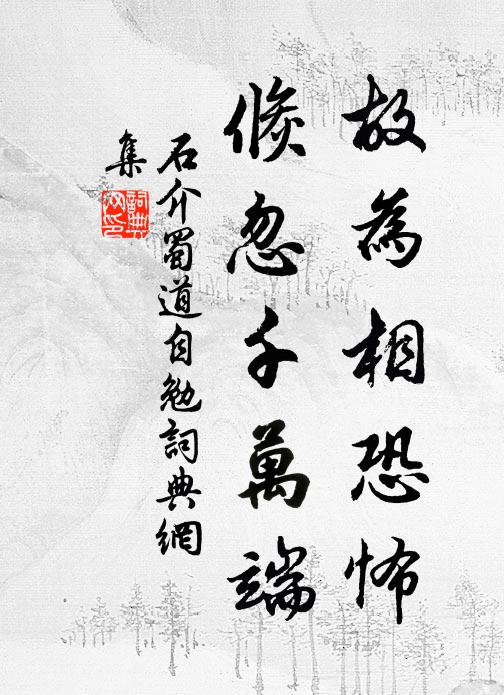 故為相恐怖
倏忽千萬端
石介蜀道自勉詞典網
集
詞典
网